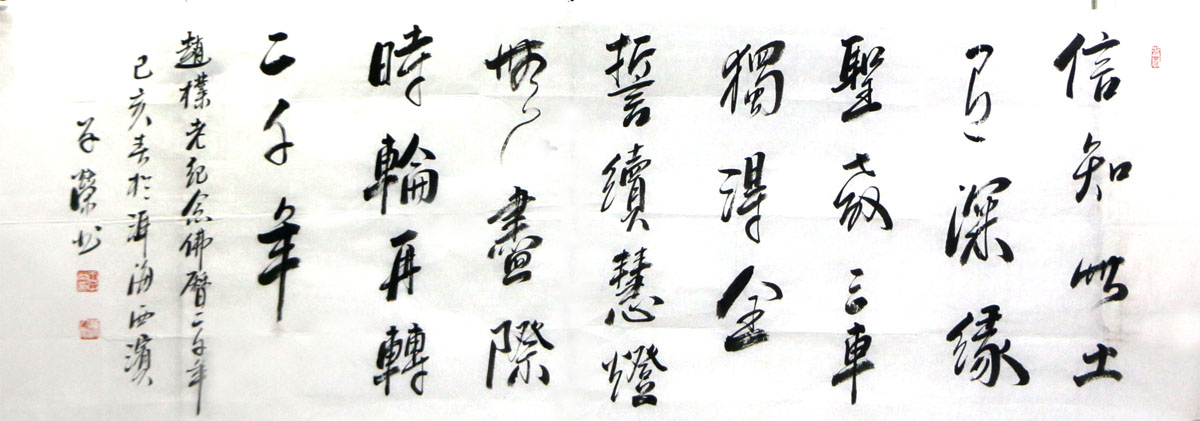 信知此土
有深緣
聖教三車
獨得全
誓續慧燈
無盡際
時輪再轉
二千年
趙樸老紀念佛曆二千年
己亥春於洱海西濱
子榮书